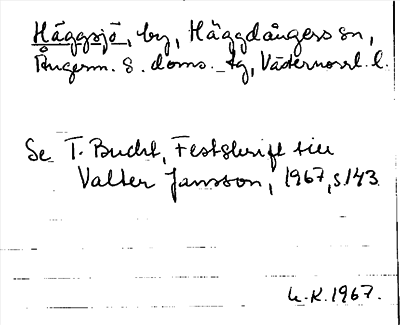 Häggsjö, by, Häggdångers sn,
Ångerm. s. doms. tg, Västernorrl. l.
Se T. Bucht, Festskrift till
Valter Jansson, 1967, s. 143
L.K. 1967.